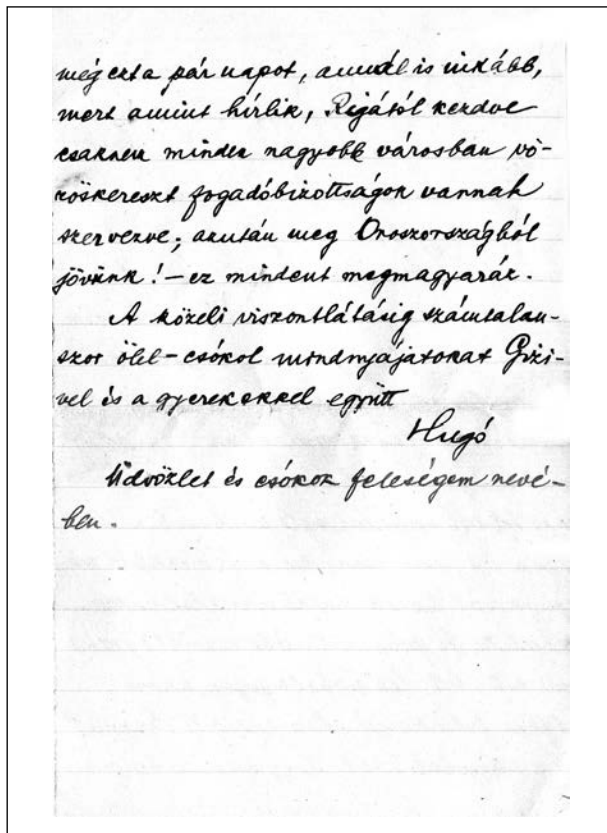 még ezt a pár napot, annál is inkább,
mert amint hírlik, Rigától kezdve
csaknem minden nagyobb városban vö-
röskereszt fogadóbizottságok vannak
szervezve; azután meg Oroszországból
jövünk! – ez mindent megmagyaráz.
A közeli viszontlátásig számtalan-
szor ölel – csókol mindnyájatokat Gizi-
vel és a gyerekekkel együtt
Hugó
Üdvözlet és csókok feleségem nevé-
ben.